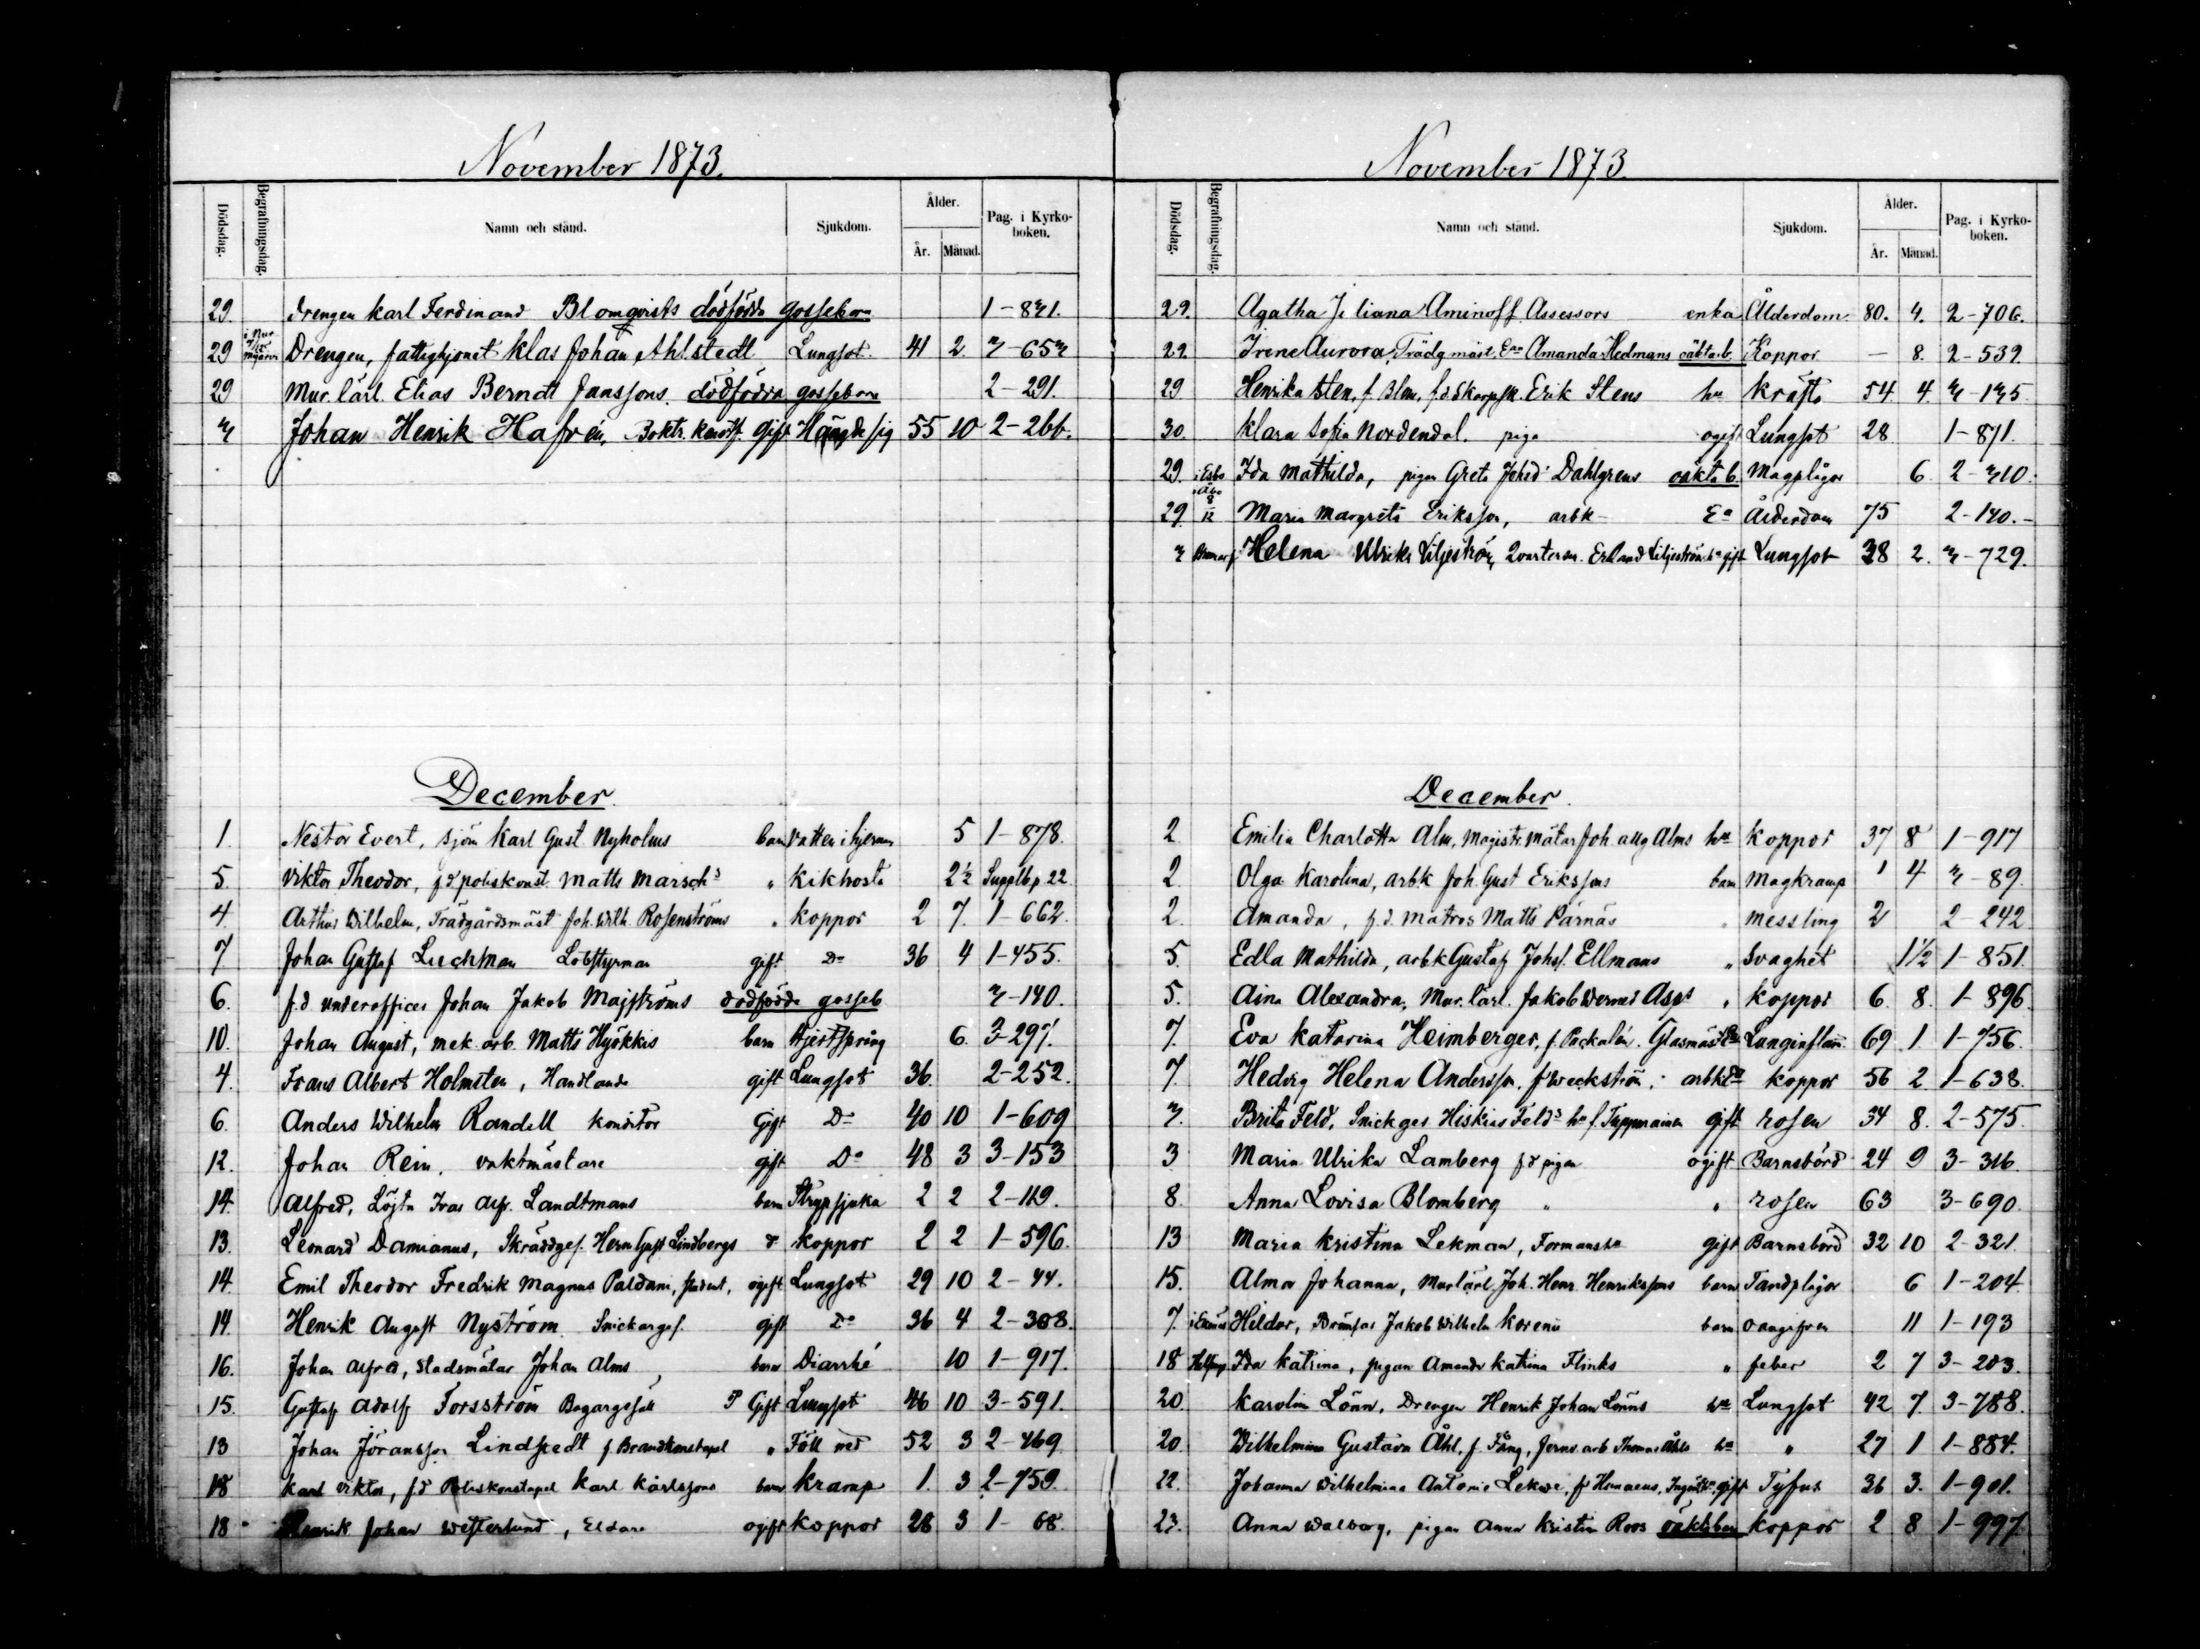 November 1873.
Dödsdag. Begrafningsdag. Namn och stånd. Sjukdom. Ålder. År. Månad. Pag. i Kyrko-boken.
29. Drengen Karl Ferdinand Blomqvists dödfödda gossebarn 1-871.
29 Drengen, fattighjonet Klas Johan Ahlstedt Lungsot. 41 2 3-653
29 Mur. lärl. Elias Berndt Janssons dödfödda gossebarn 2-291.
3 Johan Henrik Hafrén, Boktr. konstf. gift Hängde sig 55 10 2-266.
December.
1. Nestor Evert, sjöm Karl Gust Nyholms barn Vatten i hjernan 5 1-878.
5. Viktor Theodor, f.d. poliskonst. Matts Marsch's " Kikhosta 2½ Supplb p. 22
4. Arthur Wilhelm, Trädgårdsmäst. Joh. Wilh. Rosenströms " Koppor 2 7. 1-662.
7 Johan Gustaf Luchman Lotsstyrman gift Do 36 4 1-455.
6. f.d underofficer Johan Jakob Majströms dödfödda gosseb 3-140.
10. Johan August, mek. arb. Matts Hyökkis barn Hjertsprång 6. 3-297.
4. Frans Albert Holmsten, Handlande gift Lungsot 36 2-252.
6. Anders Wilhelm Randell Konditor Gift Do 40 10 1-609
12. Johan Rein, vaktmästare gift Do 48 3 3-153
14. Alfred, Löjtn Ivar Alfr. Landtmans barn Strypsjuka 2 2 2-119.
13. Leonard Damianus, Skräddges. Herm Gust Lindbergs d Koppor 2 2 1-596.
14. Emil Theodor Fredrik Magnus Paldani, student, ogift Lungsot 29 10 2-44.
14. Henrik August Nyström Snickarges. gift Do 36 4 2-308.
16. Johan Alfred, Stadsmålar Johan Alms barn Diarrhé 10 1-917.
15. Gustaf Adolf Forsström Gift Lungsot 46 10 3-591.
13 Johan Jöransson Lindstedt f Brandkonstapel " Föll ned 52 3 2-469
18 Karl Viktor, f.d Poliskonstapel Karl Karlssons barn Kramp 1. 3 2-759.
18 Henrik Johan Westerlund, Eldare ogift Koppor 28 3 1-68.
November 1873.
Dödsdag. Begrafningsdag. Namn och stånd. Sjukdom. Ålder. År. Månad. Pag. i Kyrko-boken.
29. Agatha Juliana Aminoff Assessors enka Ålderdom. 80. 4. 2-706.
29. Irene Aurora, Trädg mäst. Amanda Hedmans oäkta b. Koppor — 8. 2-539.
29 Henrika Sten, f. Blm, f.d. Skarpsk. Erik Stens hu Kräfta 54 4. 3-135
30. Klara Sofia Nordendal. piga ogift Lungsot 28 1-871.
29. i Esbo Ida Mathilda, pigan Greta Johsd Dahlgrens oäkta b. Magplågor 6. 2-310.
29. i Åbo 8/12 Maria Margreta Eriksson, arbk Ea Ålderdom 75 2-140.-
3 Helena Ulrika Liljeström, Qvarterm. Erland Liljeströms ha gift Lungsot 38 2. 3-729.
December.
2. Emilia Charlotta Alm, Magistr. målar Joh. Aug Alms hu Koppor 37 8 1-917
2. Olga Karolina, arbk Joh. Gust Erikssons barn Magkramp 1 4 3-89.
2. Amanda, f.d. matros Matts Pärnäs " Messling 2 2-242
5. Edla Mathilda, arbk Gustaf Johs. Ellmans " Svaghet 1½ 1-851.
5. Aina Alexandra, Mur. lärl. Jakob Werner Asps " Koppor 6. 8. 1-896.
7. Eva Katarina Heimberger, f. Packalén. Glasmäst Ea Lunginflam. 69 1. 1-756.
7. Hedvig Helena Andersson, f Weckström, arbk Koppor 56 2. 1-638.
7. Brita Feld, Snickges. Hiskias Felds ha f. Tuppurainen gift rosen 34 8. 2-575.
3 Maria Ulrika Lamberg f.d pigan ogift Barnsbörd 24 9 3-316.
8. Anna Lovisa Blomberg " " rosen 63 3-690.
13 Maria Kristina Lekman, Formanshu gift Barnsbörd 32 10 2-321.
15. Alma Johanna, Murlärl. Joh. Henr. Henrikssons barn Tandplågor 6 1-204.
7. i Ekenäs Hildor, Jakob Wilhelm Korenii barn oangifven 11 1-193
18 Helsing Ida Katrina, pigan Amanda Katrina Flinks " feber 2 7 3-203.
20. Karolina Lönn, Drengen Henrik Johan Lönns hu Lungsot 42 7. 3-788.
20. Wilhelmina Gustava Åhl, f. Fång, Jernv. arb Thomas Åhls ha " 27 1 1-884.
22. Johanna Wilhelmina Antonie Lekve, f Homaeus, gift Tyfus 36 3. 1-901.
23. Anna Walborg, pigan Anna Kristin Roos oäkta barn Koppor 2 8 1-997.